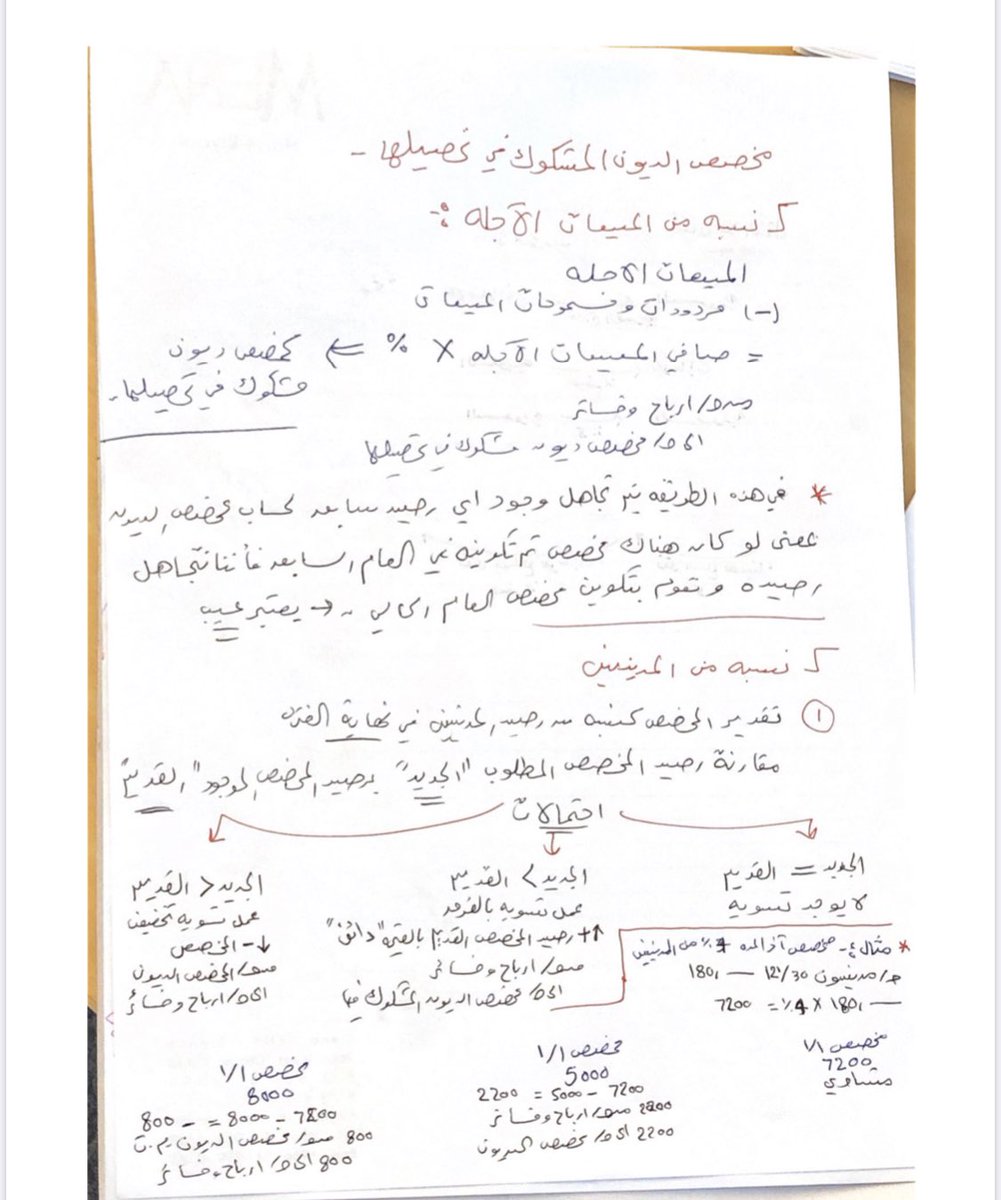 مخصص الديون المشكوك في تحصيلها -
نسبه من المبيعات الآجله :-
المبيعات الاجله
(-) مردودات ومسموحات المبيعات
= صافي المبيعات الآجله × % ⇐ مخصص ديون
مشكوك في تحصيلها.
من ح/ ارباح وخسائر
الى ح/ مخصص ديون مشكوك في تحصيلها
* في هذه الطريقه يتم تجاهل وجود اي رصيد سابق لحساب مخصص الديون
بمعنى لو كان هناك مخصص تم تكوينه في العام السابق فأننا نتجاهل
رصيده ونقوم بتكوين مخصص العام الحالي → يعتبر عيب
نسبه من المدينين
① تقدير المخصص كنسبه من رصيد المدينين في نهاية الفتره
مقارنة رصيد المخصص المطلوب "الجديد" برصيد المخصص الموجود "القديم"
احتمالات
الجديد = القديم
لا يوجد تسويه
الجديد > القديم
عمل تسويه بالفرق
↑+ رصيد المخصص القديم "دائن"
من ح/ ارباح وخسائر
الى ح/ مخصص الديون المشكوك فيها
الجديد < القديم
عمل تسويه تخفيض
↓- المخصص
من ح/ المخصص الديون
الى ح/ ارباح وخسائر
* مثال :- مخصص آخر المده 4٪ من المدينين
ح/ مدينون 12/30 — 180,
— 180, × 4٪ = 7200
مخصص 1/1
7200
متساوي
مخصص 1/1
5000
7200 - 5000 = 2200
2200 من ح/ ارباح وخسائر
2200 الى ح/ مخصص الديون
مخصص 1/1
8000
7200 - 8000 = - 800
800 من ح/ مخصص الديون م.ت
800 الى ح/ ارباح وخسائر